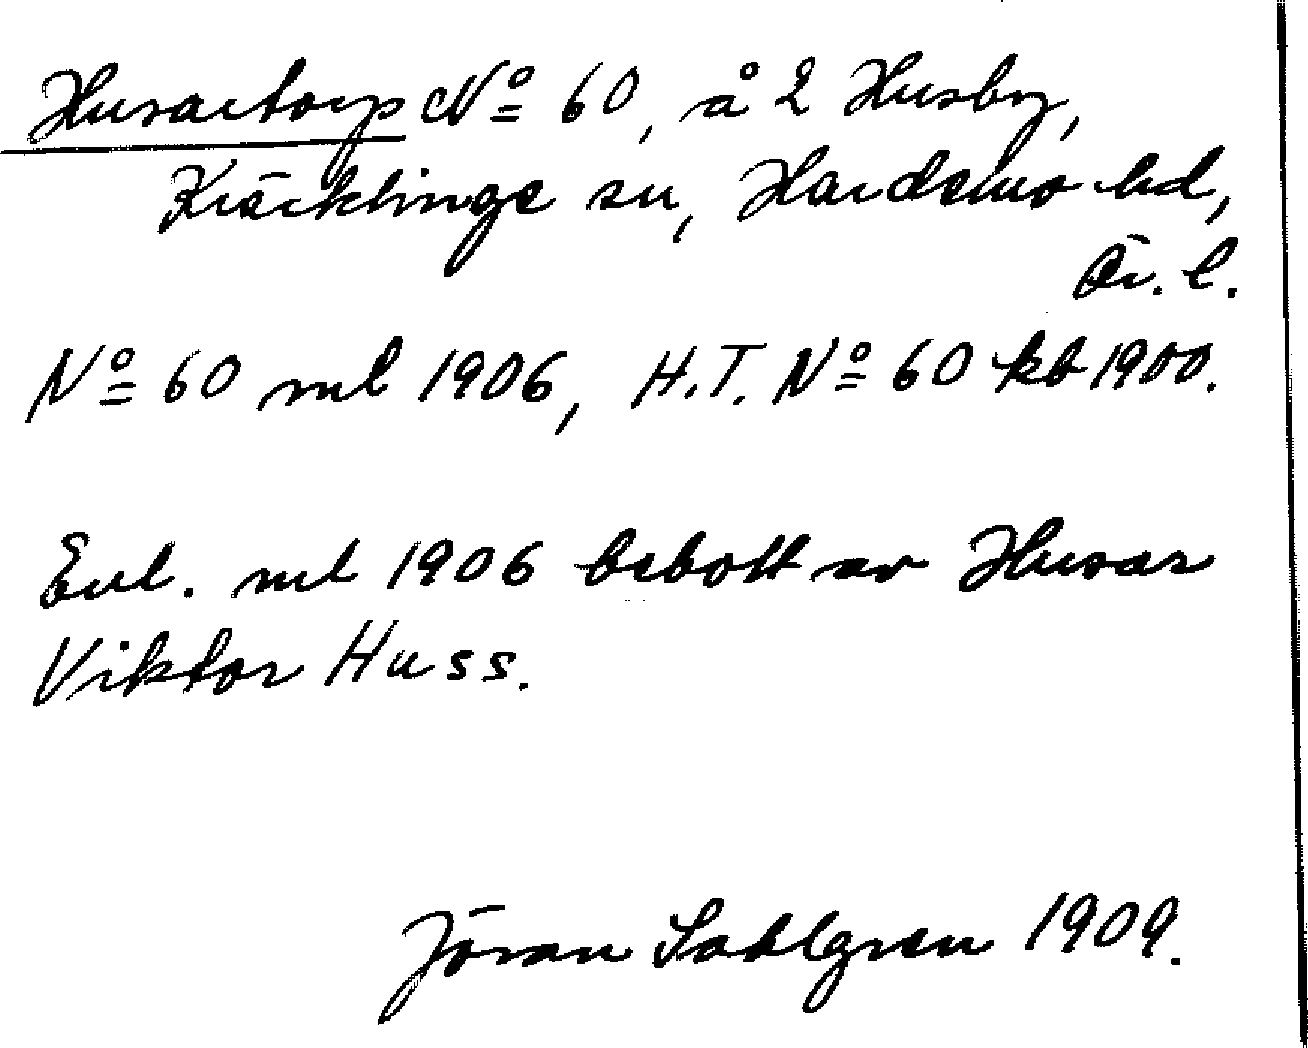 Husartorp Nº 60, å 2 Husby,
Kräcklinge sn, Hardemo hd,
Ör. l.
Nº 60 ml 1906, H.T. Nº 60 kb 1900.
Enl. ml 1906 bebott av Husar
Viktor Huss.
Jöran Sahlgren 1909.